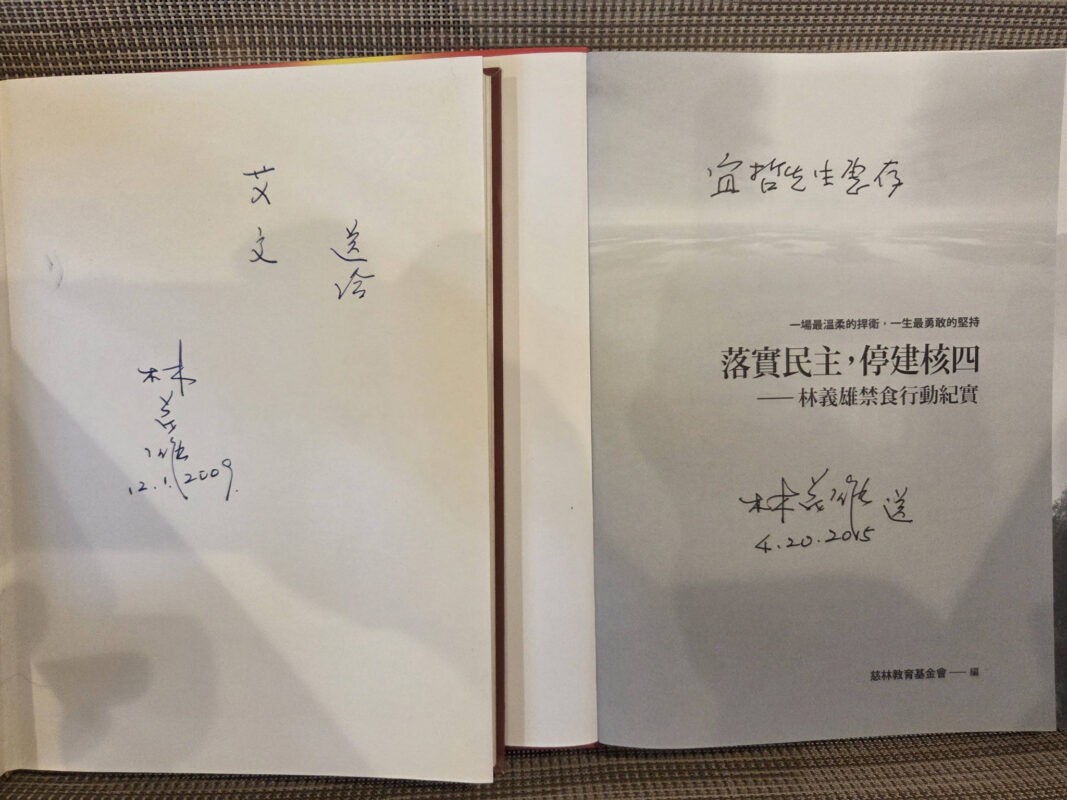 送給
艾文
林義雄
12.1.2009.
宜哲先生惠存
一場最溫柔的捍衛，一生最勇敢的堅持
落實民主，停建核四
——林義雄禁食行動紀實
林義雄送
4.20.2015
慈林教育基金會——編